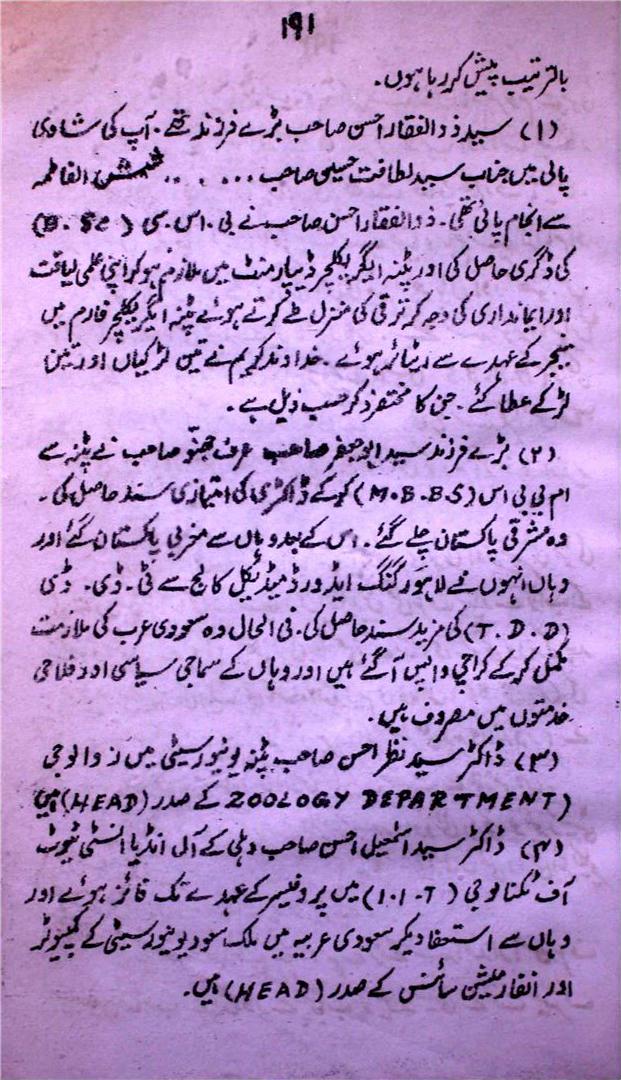 ۱۹۱
بالترتیب پیش کر رہا ہوں۔
(۱) سید ذوالفقار احسن صاحب بڑے فرزند تھے۔ آپ کی شادی
پالی میں جناب سید لطافت حسین صاحب ..... الفاطمہ
سے انجام پائی تھی۔ ذوالفقار احسن صاحب نے بی۔اس۔سی (B.Sc)
کی ڈگری حاصل کی اور پٹنہ ایگریکلچر ڈیپارمنٹ میں ملازم ہو کر اپنی علمی لیاقت
اور ایمانداری کی وجہ کر ترقی کی منزل طے کرتے ہوئے پٹنہ ایگریکلچر فارم میں
مینجر کے عہدے سے ریٹائر ہوئے۔ خداوند کریم نے تین لڑکیاں اور تین
لڑکے عطا کئے۔ جن کا مختصر ذکر حسب ذیل ہے۔
(۲) بڑے فرزند سید ابو جعفر صاحب عرف صاحب نے پٹنہ سے
ام بی بی اس (M.B.B.S) کر کے ڈاکٹری کی امتیازی سند حاصل کی۔
وہ مشرقی پاکستان چلے گئے۔ اس کے بعد وہاں سے مغربی پاکستان گئے اور
وہاں انہوں نے لاہور کنگ ایڈورڈ میڈیکل کالج سے ٹی۔ڈی۔ ڈی
(T.D.D) کی مزید سند حاصل کی۔ فی الحال وہ سعودی عرب کی ملازمت
مکمل کر کے کراچی واپس آ گئے ہیں اور وہاں کے سماجی سیاسی اور فلاحی
خدمتوں میں مصروف ہیں۔
(۳) ڈاکٹر سید نظر احسن صاحب پٹنہ یونیورسیٹی میں زوالوجی
(ZOOLOGY DEPARTMENT) کے صدر (HEAD) ہیں
(۴) ڈاکٹر سید اسمٰعیل احسن صاحب دہلی کے آل انڈیا انسٹی ٹیوٹ
آف ٹکنالوجی (I.I.T) میں پروفیسر کے عہدے تک فائز ہوئے اور
وہاں سے استعفا دیکر سعودی عربیہ میں ملک سعود یونیورسیٹی کے کمپیوٹر
اور انفارمیشن سائنس کے صدر (HEAD) ہیں۔